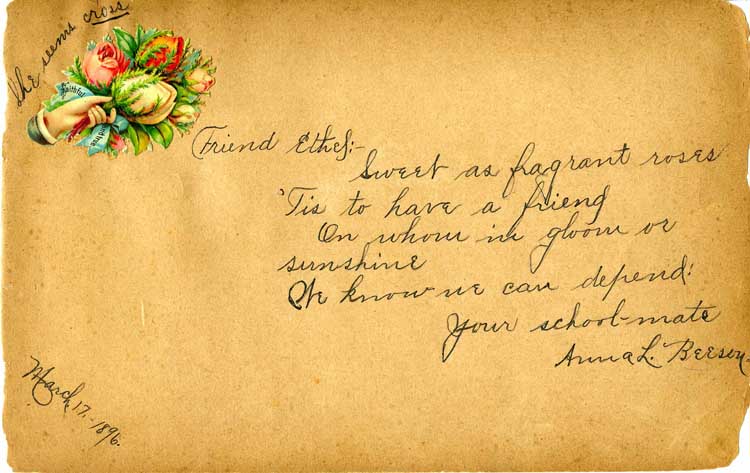 She seems cross
Faithful
and true
Friend Ethel:-
Sweet as fragrant roses
'Tis to have a friend
On whom in gloom or
sunshine
We know we can depend.
Your school-mate
Anna L. Beeson.
March, 17,-1896.